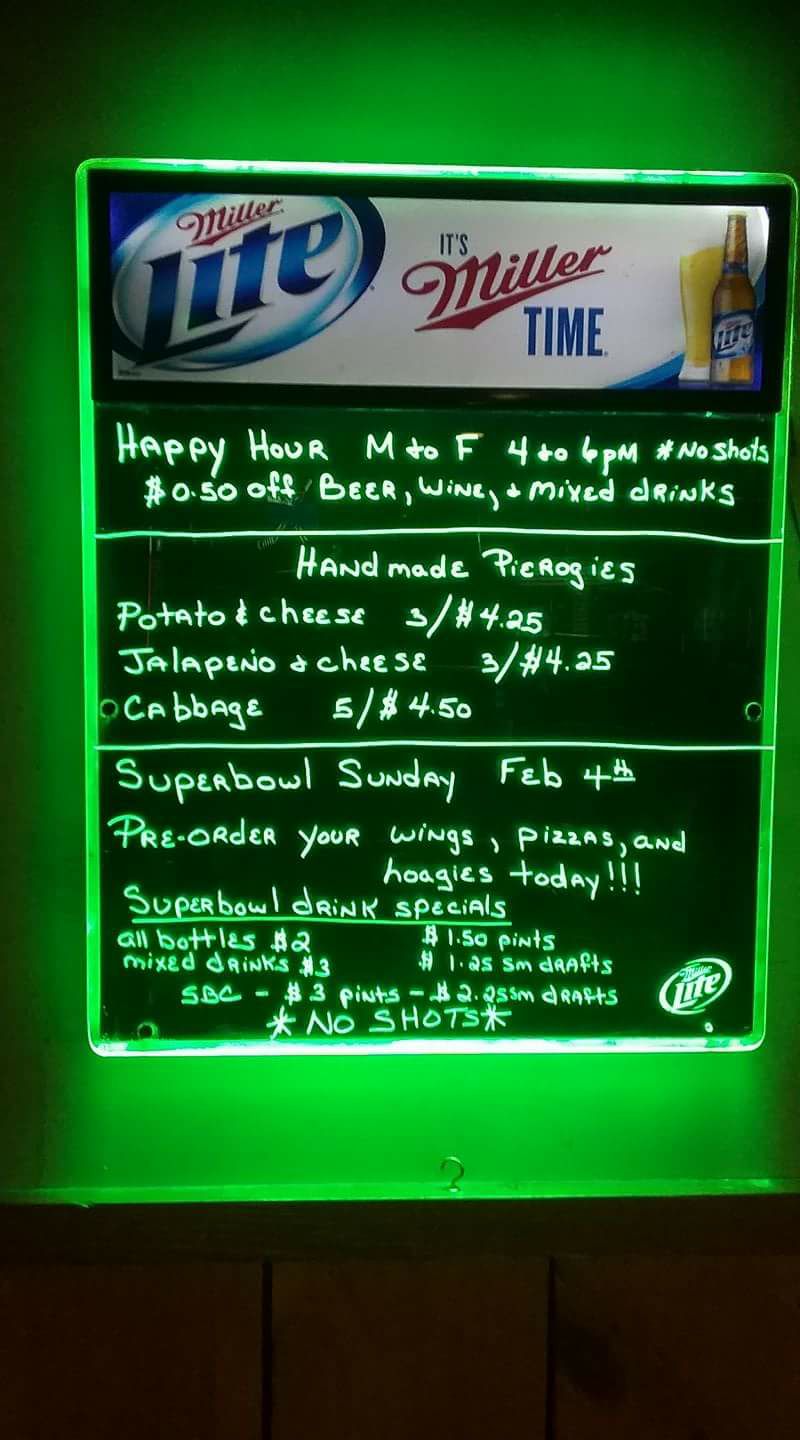 Miller
Lite
IT'S
Miller
TIME
Lite
Happy Hour M to F 4 to 6pm *No Shots
$0.50 off Beer, Wine, + mixed drinks
Handmade Pierogies
Potato & cheese 3/$4.25
Jalapeno & cheese 3/$4.25
Cabbage 5/$4.50
Superbowl Sunday Feb 4th
Pre-order your wings, pizzas, and
hoagies today!!!
Superbowl drink specials
all bottles $2 $1.50 pints
mixed drinks $3 $1.25 sm drafts
SBC - $3 pints - $2.25 sm drafts
*NO SHOTS*
Miller
Lite